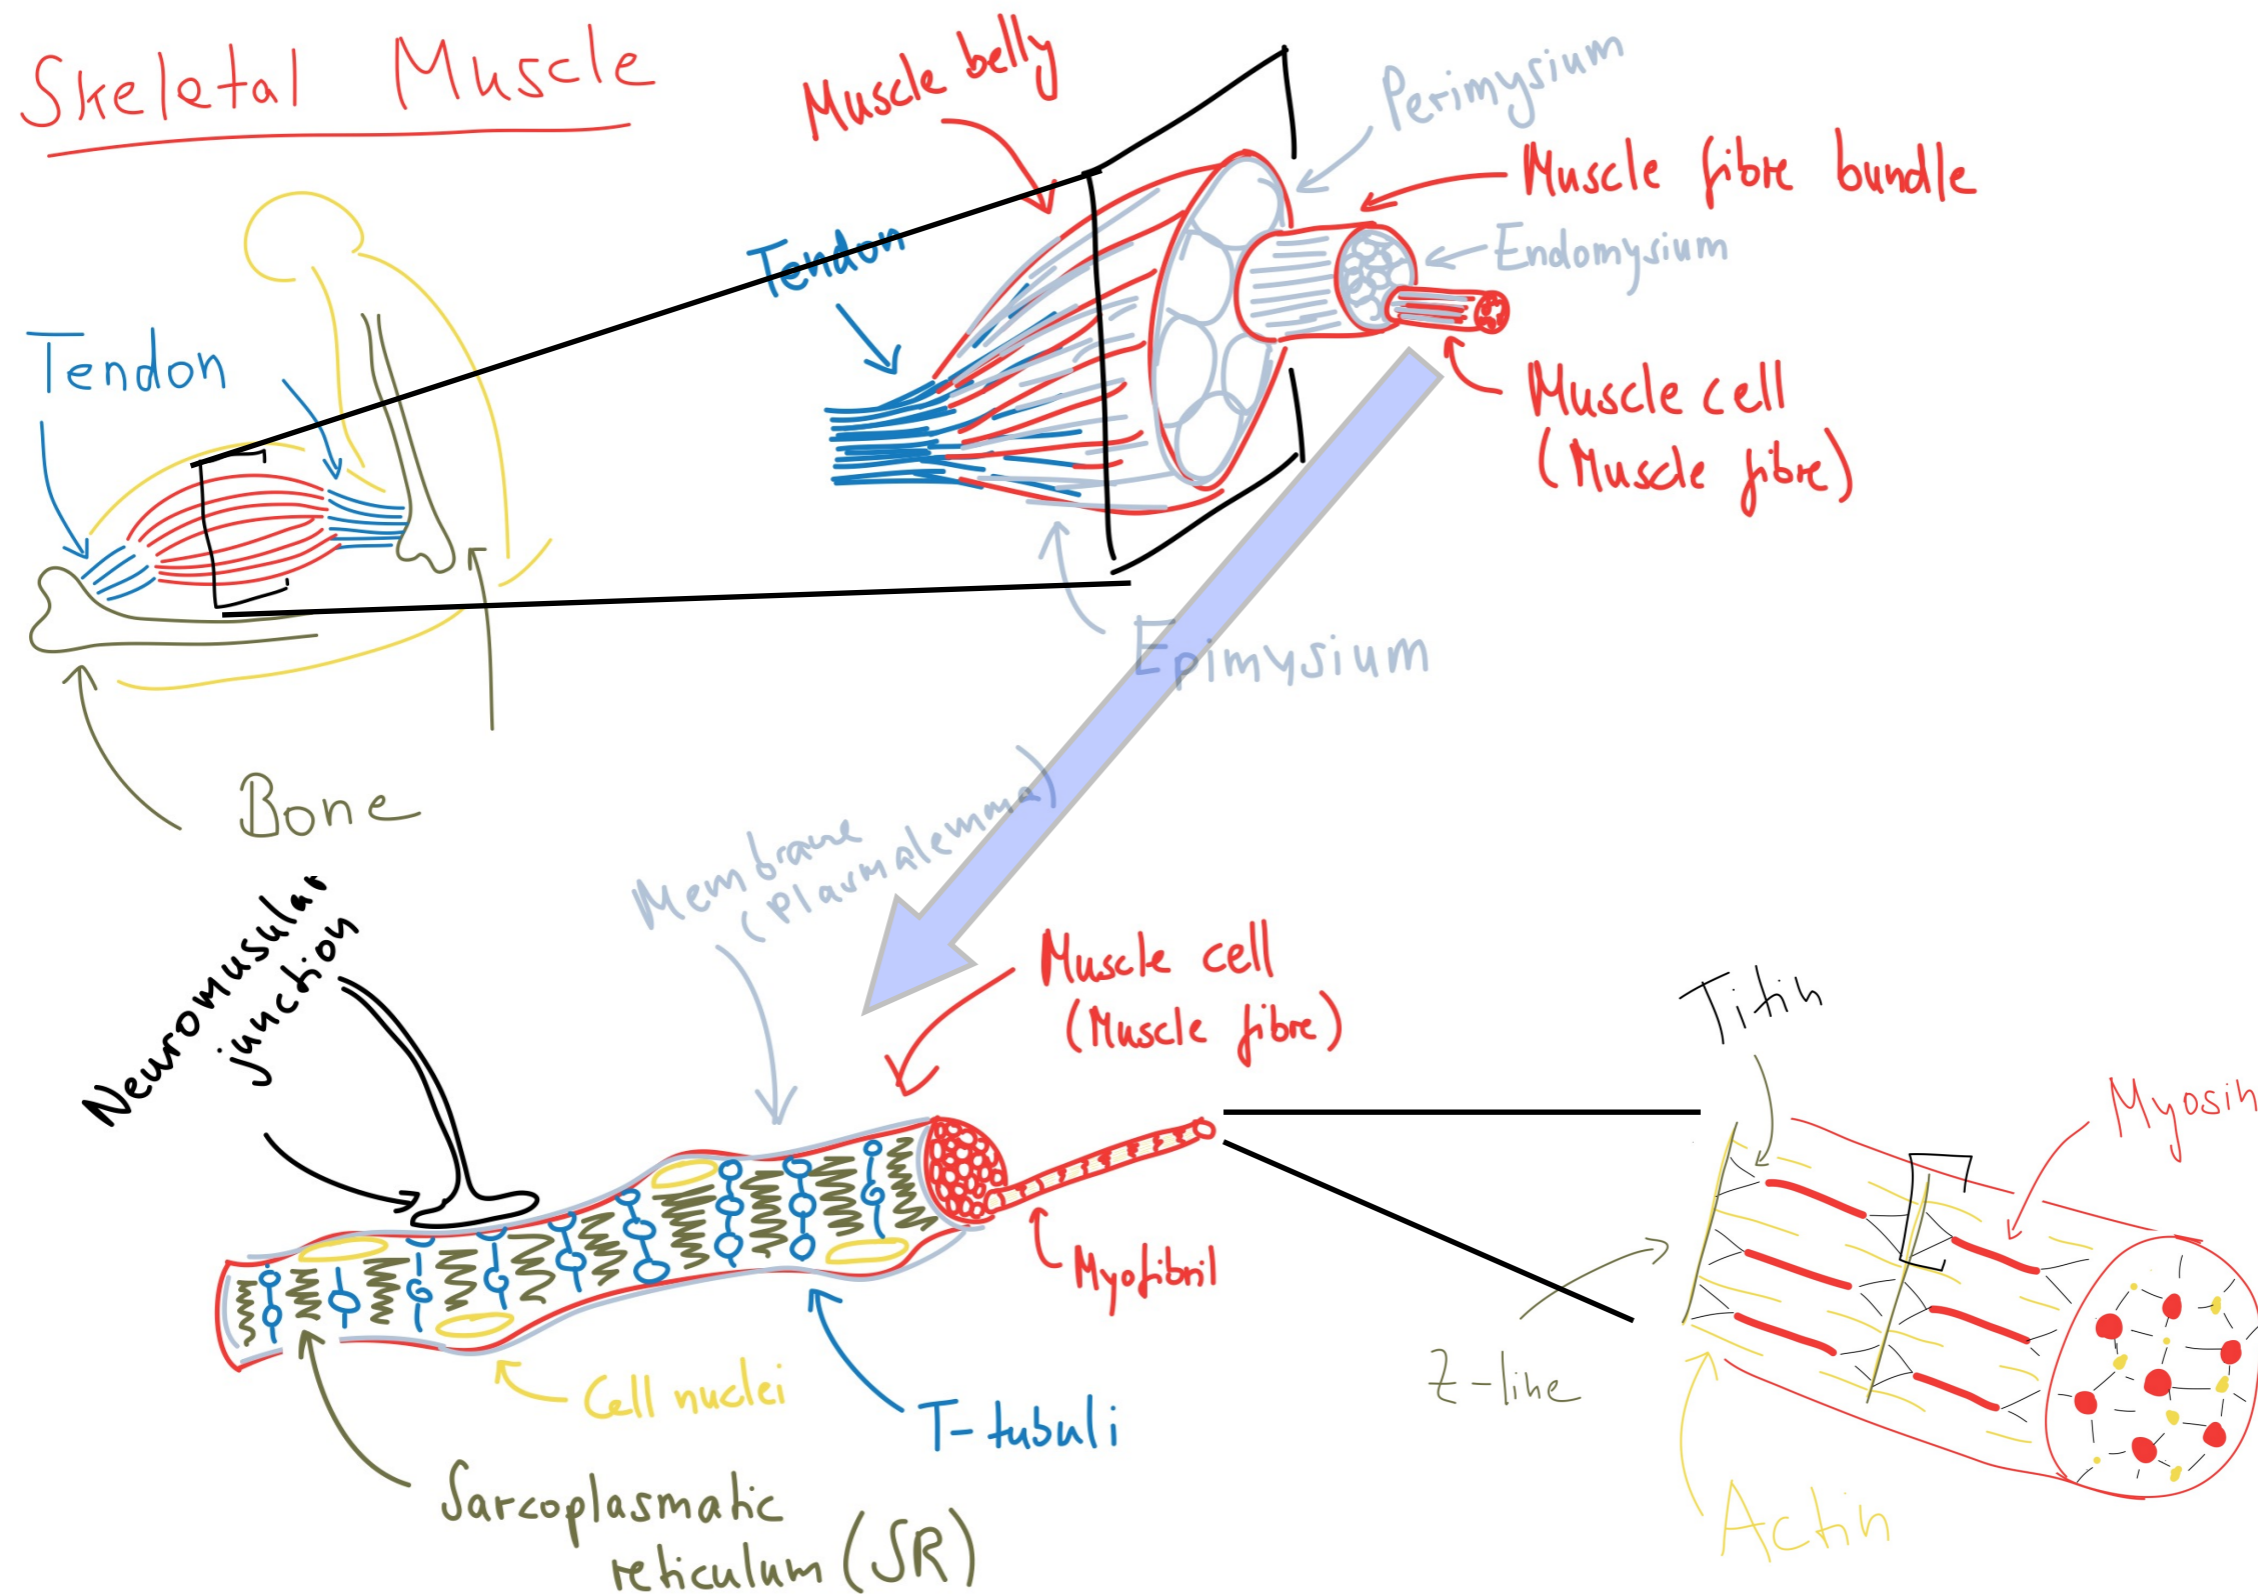 Skeletal Muscle
Muscle belly
Perimysium
Muscle fibre bundle
Endomysium
Tendon
Tendon
Muscle cell
(Muscle fibre)
Epimysium
Bone
Membrane
(plasmalemma)
Neuromusular
junction
Muscle cell
(Muscle fibre)
Titin
Myosin
Myofibril
Z-line
Cell nuclei
T-tubuli
Actin
Sarcoplasmatic
reticulum (SR)